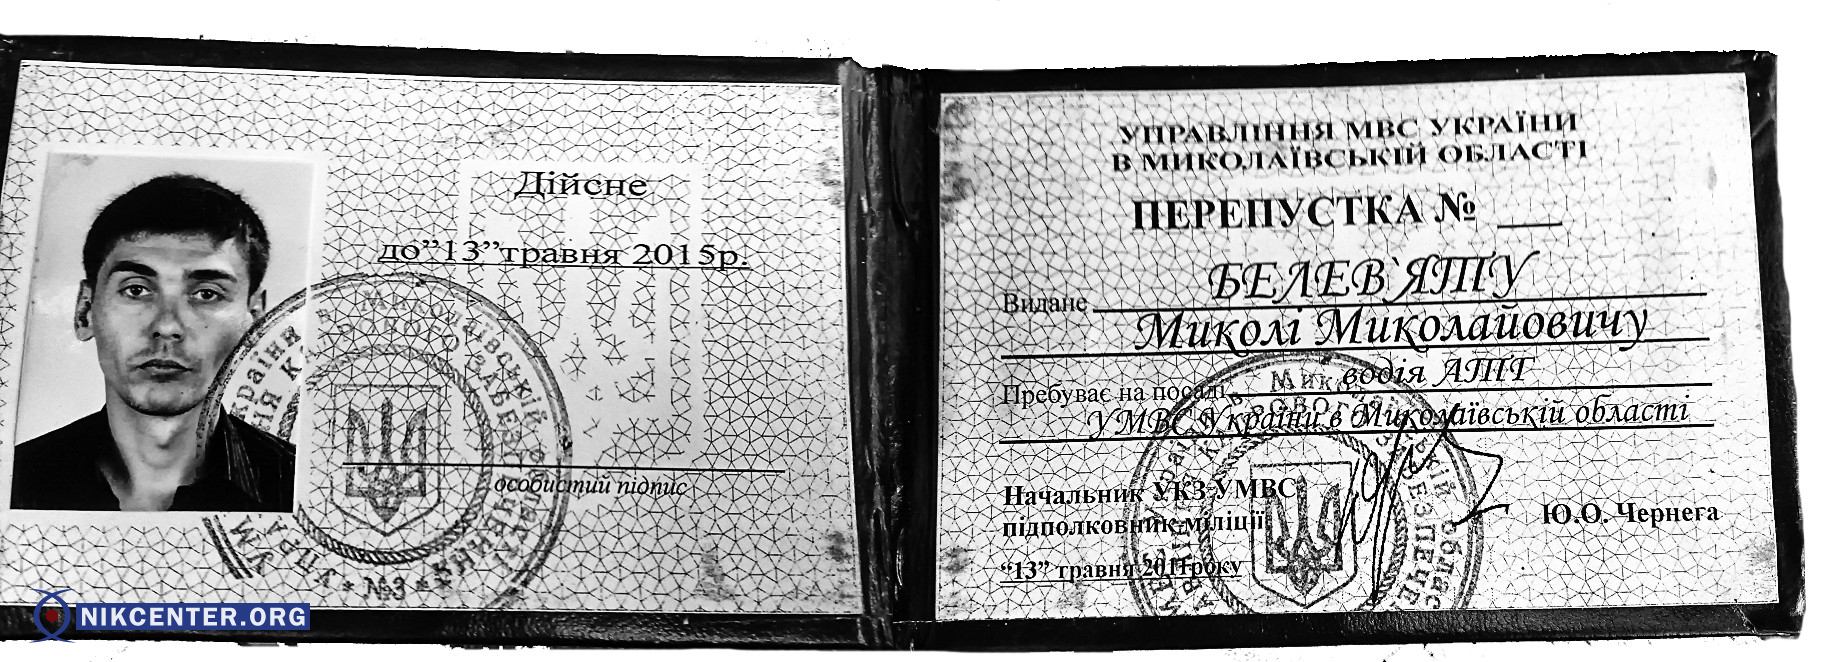 Дійсне
до”13”травня 2015р.
особистий підпис
№3
УПРАВЛІННЯ МВС УКРАЇНИ
В МИКОЛАЇВСЬКІЙ ОБЛАСТІ
ПЕРЕПУСТКА № ___
Видане БЕЛЕВ`ЯТУ
Миколі Миколайовичу
Пребуває на посаді водія АТГ
УМВС України в Миколаївській області
Начальник УКЗ УМВС
підполковник міліції Ю.О. Чернега
“13” травня 2011року
NIKCENTER.ORG